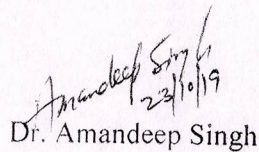 Amandeep Singh
23/10/19
Dr. Amandeep Singh